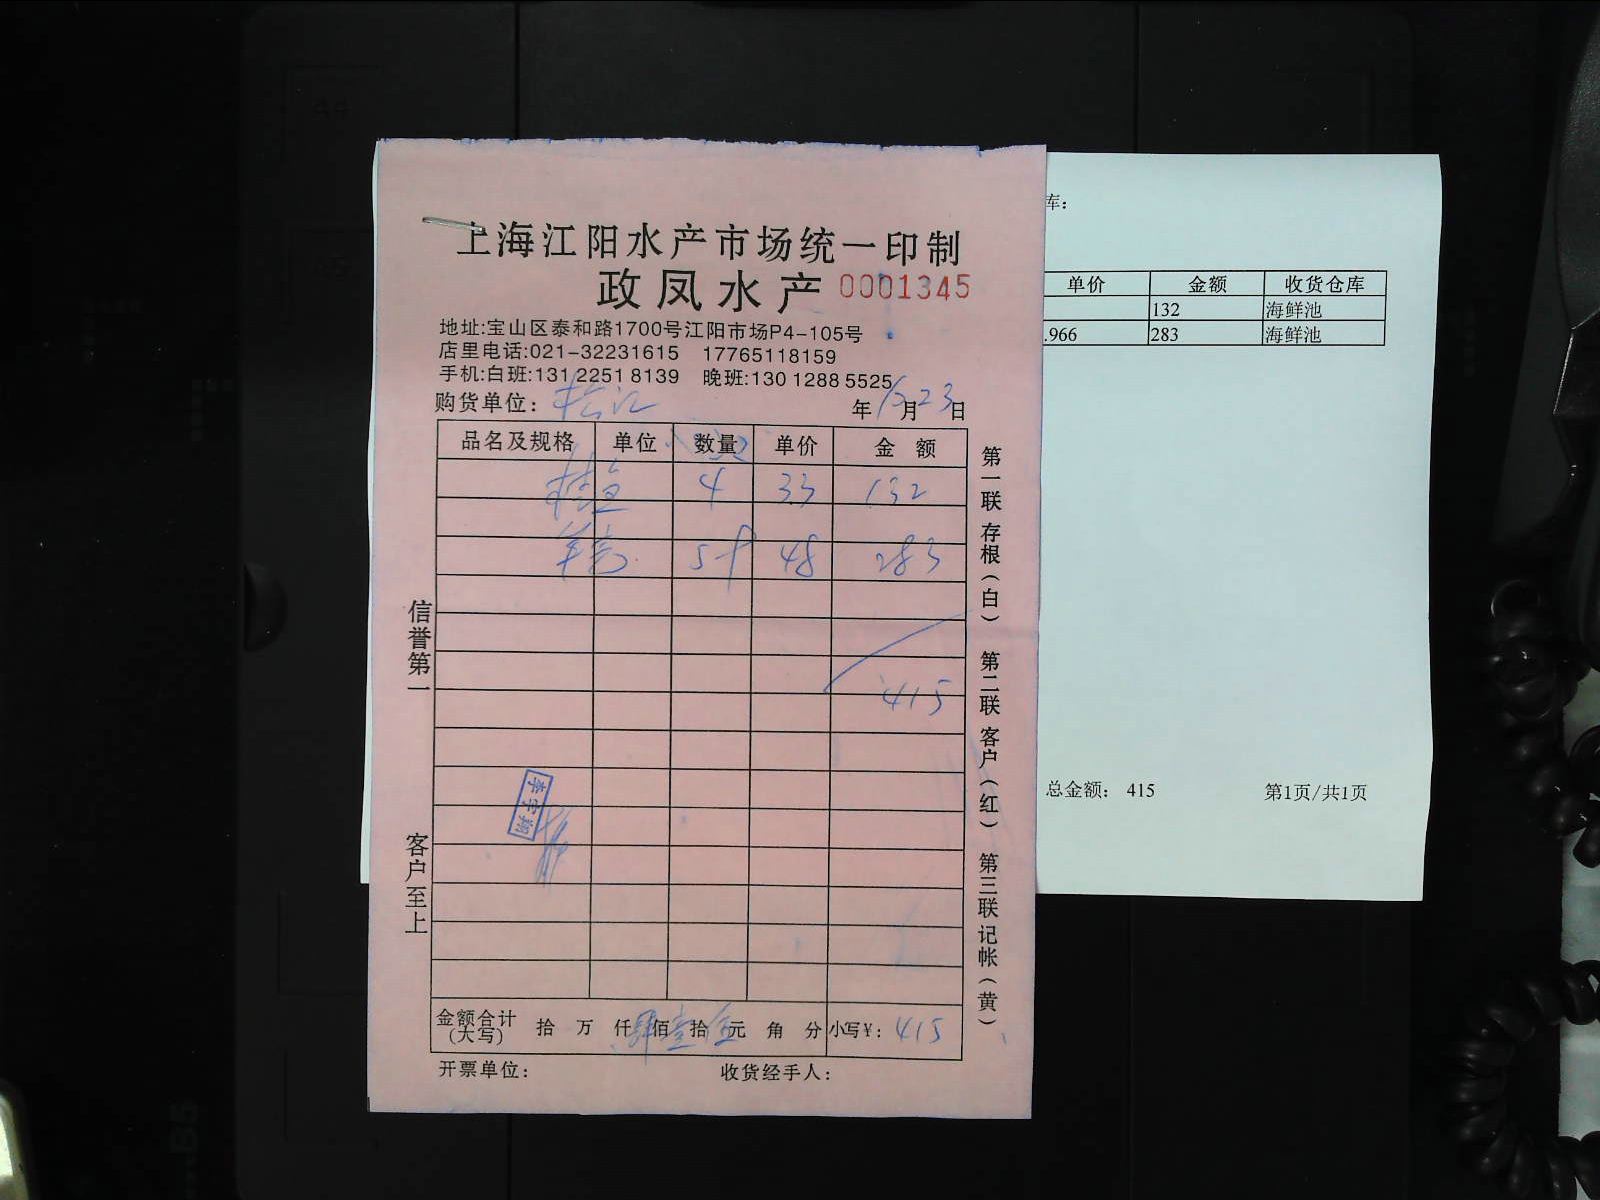 上海江阳水产市场统一印制
政凤水产 0001345
地址:宝山区泰和路1700号江阳市场P4-105号
店里电话:021-32231615 17765118159
手机:白班:131 2251 8139 晚班:130 1288 5525
购货单位: 松江 年12月23日
品名及规格 单位 数量 单价 金额
桂鱼 4 33 132
48 283
415
信誉第一
客户至上
李宇翔
金额合计(大写) 拾 万 仟肆佰壹拾伍元 角 分 小写¥: 415
开票单位: 收货经手人:
第一联 存根(白) 第二联 客户(红) 第三联 记帐(黄)
库:
单价 金额 收货仓库
132 海鲜池
.966 283 海鲜池
总金额: 415 第1页/共1页